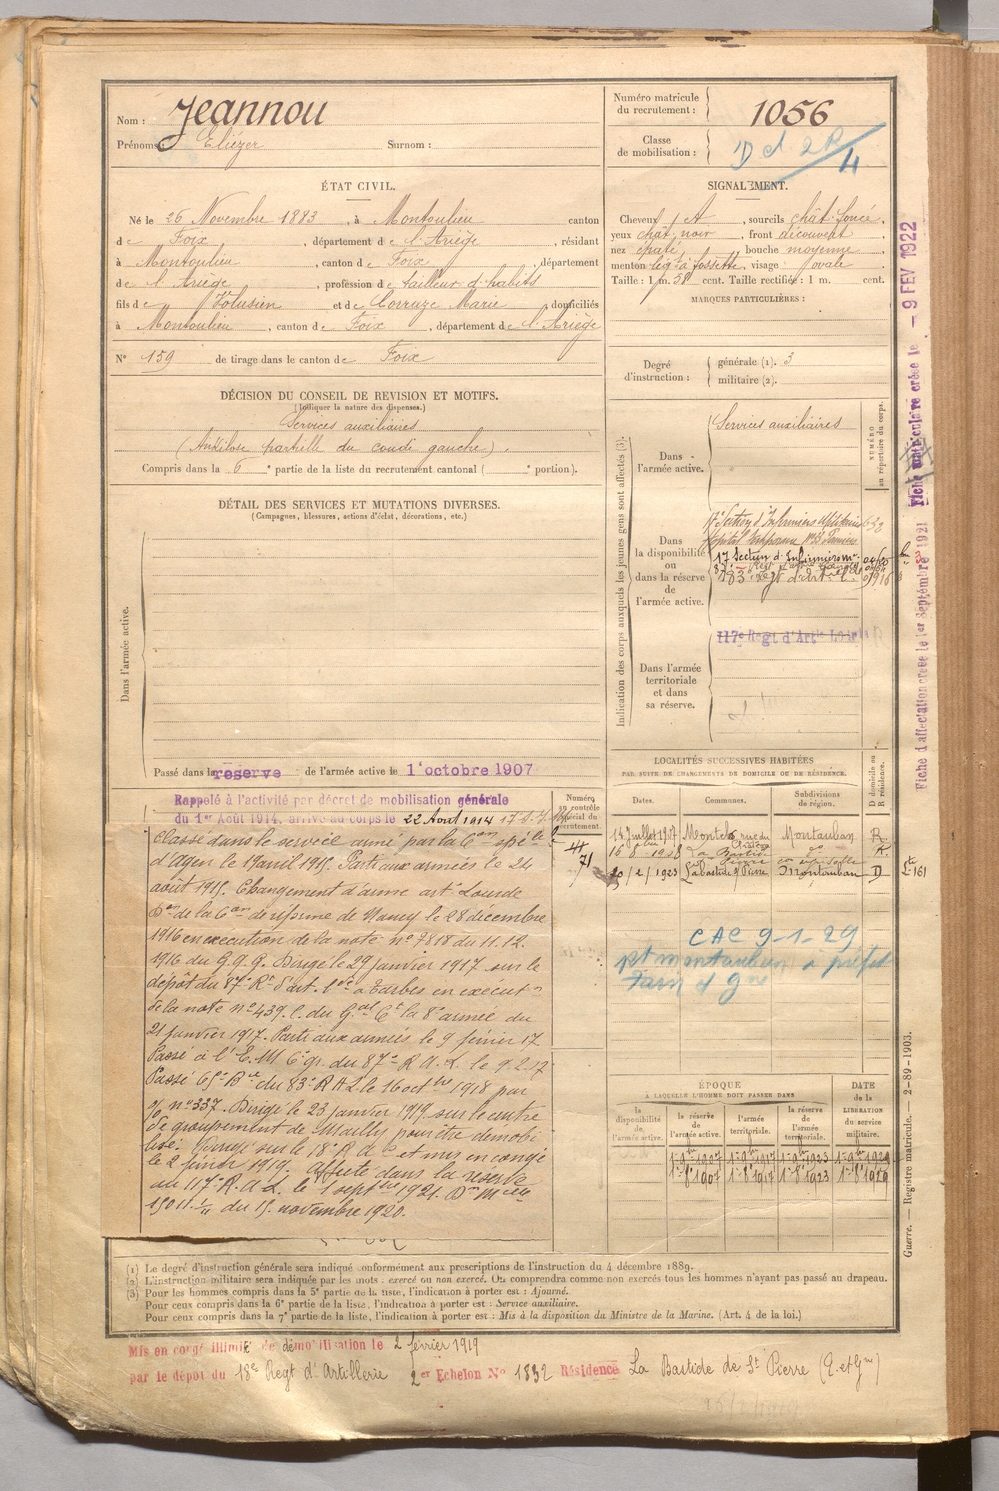 Nom : Jeannou
Prénoms : Eliézer Surnom :
Numéro matricule du recrutement : 1056
Classe de mobilisation :
ÉTAT CIVIL.
Né le 26 Novembre 1883, à Montoulieu canton
de Foix, département de l'Ariège, résidant
à Montoulieu, canton de Foix, département
de l'Ariège, profession de tailleur d'habits
fils de Volusien et de Correuze Marie domiciliés
à Montoulieu, canton de Foix, département de l'Ariège
N° 159 de tirage dans le canton de Foix
SIGNALEMENT.
Cheveux , sourcils chât. foncé,
yeux chât. noir, front découvert,
nez épaté, bouche moyenne
menton lég. à fossette, visage ovale
Taille : 1 m. 58 cent. Taille rectifiée : 1 m. cent.
MARQUES PARTICULIÈRES :
Degré d'instruction : générale (1). 3
militaire (2).
DÉCISION DU CONSEIL DE REVISION ET MOTIFS.
(Indiquer la nature des dispenses.)
Services auxiliaires
(Ankilose partielle du coude gauche).
Compris dans la 6e partie de la liste du recrutement cantonal ( portion).
DÉTAIL DES SERVICES ET MUTATIONS DIVERSES.
(Campagnes, blessures, actions d'éclat, décorations, etc.)
Dans l'armée active.
Passé dans la réserve de l'armée active le 1er octobre 1907
Rappelé à l'activité par décret de mobilisation générale
du 1er Août 1914, arrivé au corps le 22 Aout 1914
Classé dans le service armé par la Con spéle
d'Agen le 19 avril 1915. Parti aux armées le 24
août 1915. Changement d'arme artie Lourde
Don de la Con de réforme de Nancy le 28 décembre
1916 en exécution de la note n° 7818 du 11.12.
1916 du G.Q.G. Dirigé le 29 janvier 1917 sur le
dépôt du 87e Rt d'art. Lde à Tarbes en exécuton
de la note n° 439.C. du Gal Ct la 8e armée du
21 janvier 1917. Parti aux armées le 9 février 17
Passé à l'E.M. 6e gr. du 87e R.A.L. le 9-2-17
Passé 65e Bie du 83e R.A.L le 16 octbre 1918 par
o/o n° 337. Dirigé le 23 janvier 1919 sur le centre
de groupement de Mailly pour être démobi
lisé. Dirigé sur le 18e R.A.C et mis en congé
le 2 février 1919. Affecté dans la réserve
au 117e R.A.L. le 1 septbre 1921. Don Melle
15011 1/11 du 15 novembre 1920.
Indication des corps auxquels les jeunes gens sont affectés (3).
NUMÉRO au répertoire du corps.
Dans l'armée active. Services auxiliaires
Dans la disponibilité ou dans la réserve de l'armée active.
17e Section d'Infirmiers Militaires
Hôpital Temporaire
17 Section d'Infirmiers
83e Régt d'Art.
Dans l'armée territoriale et dans sa réserve.
117e Regt d'Artie Lourde
LOCALITÉS SUCCESSIVES HABITÉES
PAR SUITE DE CHANGEMENTS DE DOMICILE OU DE RÉSIDENCE.
Numéro au contrôle spécial du recrutement.
Dates. Communes. Subdivisions de région. D domicile ou R résidence.
44
71
14 Juillet 1907 Montech Montauban R.
16-8-1908 La Bastide St Pierre do R.
20/2/1923 Labastide St Pierre Montauban D
CAC 9-1-29
pt montauban à préfet
Tarn et Gne
ÉPOQUE
À LAQUELLE L'HOMME DOIT PASSER DANS
DATE de la LIBÉRATION du service militaire.
la disponibilité de l'armée active. la réserve de l'armée active. l'armée territoriale. la réserve de l'armée territoriale.
1er 8bre 1907 1er 8bre 1917 1er 8bre 1923 1er 8bre 1929
(1) Le degré d'instruction générale sera indiqué conformément aux prescriptions de l'instruction du 4 décembre 1889.
(2) L'instruction militaire sera indiquée par les mots : exercé ou non exercé. On comprendra comme non exercés tous les hommes n'ayant pas passé au drapeau.
(3) Pour les hommes compris dans la 5e partie de la liste, l'indication à porter est : Ajourné.
Pour ceux compris dans la 6e partie de la liste, l'indication à porter est : Service auxiliaire.
Pour ceux compris dans la 7e partie de la liste, l'indication à porter est : Mis à la disposition du Ministre de la Marine. (Art. 4 de la loi.)
Mis en congé illimité de démobilisation le 2 février 1919
par le dépôt du 18e Regt d'Artillerie 2er Echelon N° 1832 Résidence La Bastide de St Pierre (T. et Gne)
Fiche d'affectation créée le 1er Septembre 1921 Fiche matriculaire créée le - 9 FEV 1922
Guerre. — Registre matricule. — 2-89-1903.